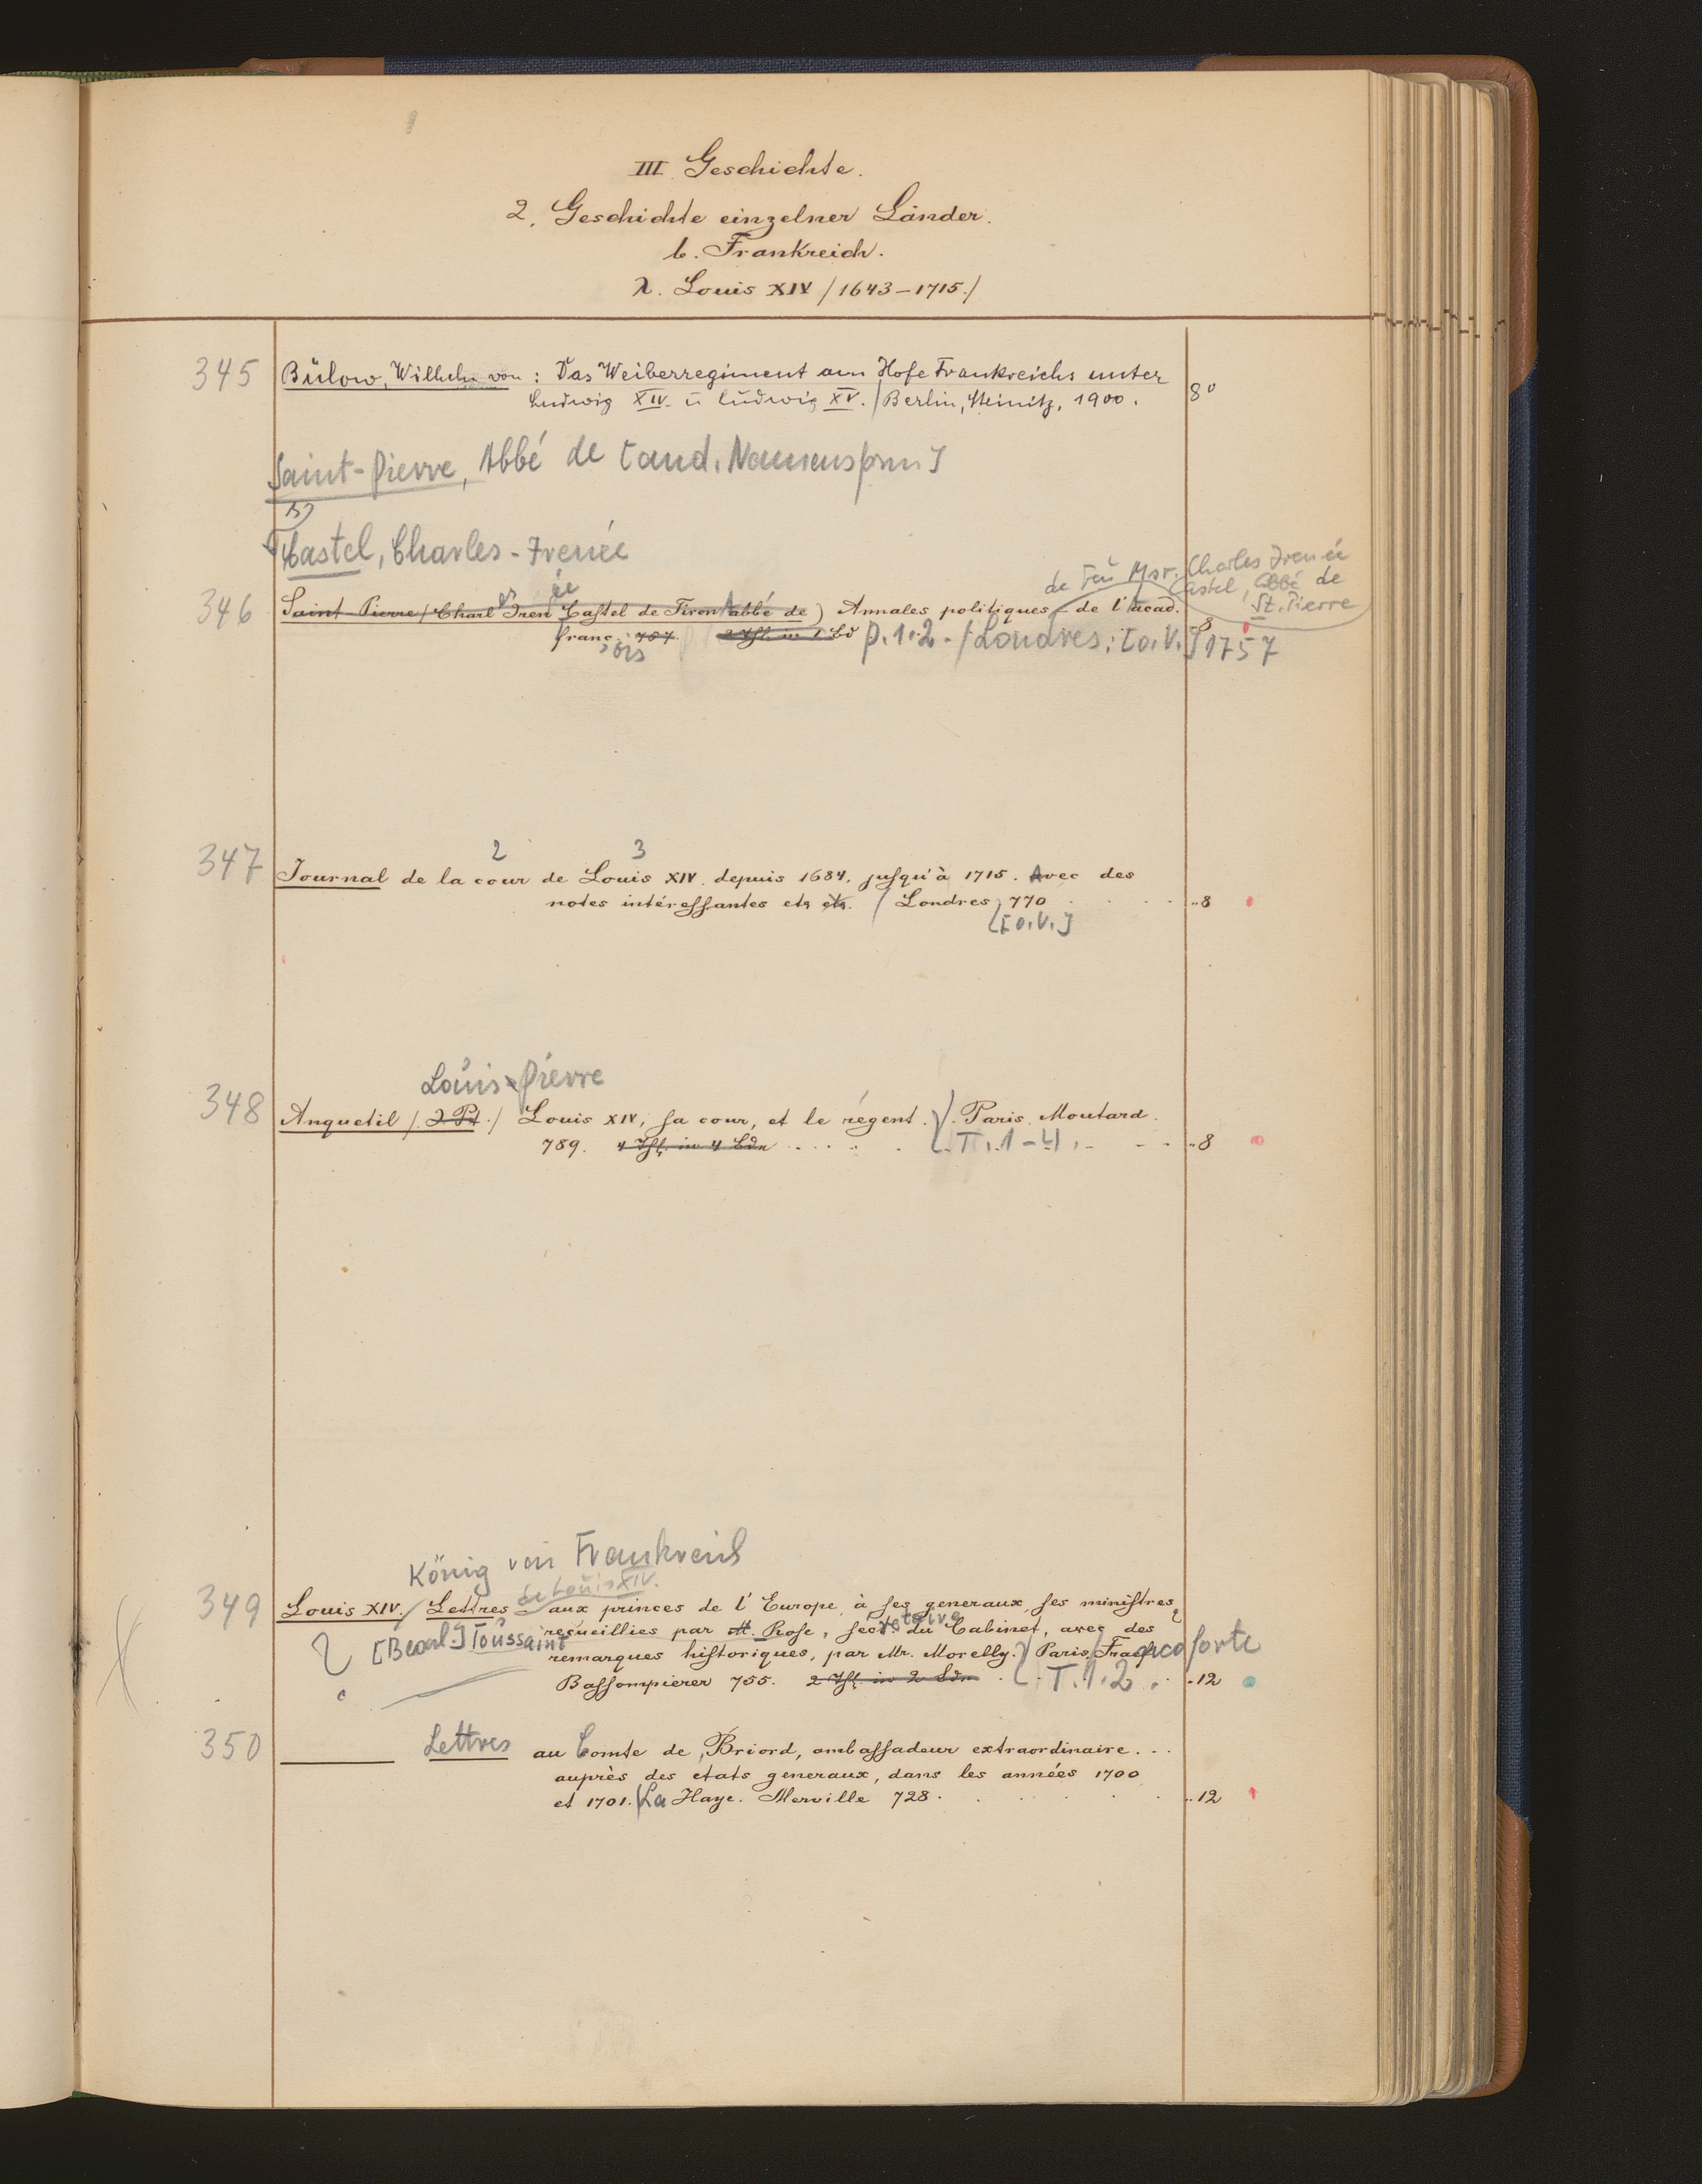 III. Geschichte.
2. Geschichte einzelner Länder.
b. Frankreich.
λ. Louis XIV /1643–1715./
345 Bülow, Wilhelm von: Das Weiberregiment am Hofe Frankreichs unter
Ludwig XIV. u Ludwig XV. / Berlin, Steinitz, 1900. 8°
Saint-Pierre, Abbé de [and. Namensform]
Castel, Charles-Irenée
de feu Msr. Charles Irenée
Castel, Abbé de
St. Pierre
346 Saint Pierre / Charl Iren Castel de Tiron abbé de) Annales politiques de l'acad.
franç. 757. 2 Thl. in 1 Bd P. 1.2. / Londres: [o.V.] 1757
ois
8
2 3
347 Journal de la cour de Louis XIV. depuis 1684. jusqu'à 1715. Avec des
notes intéressantes etc etc. / Londres, 770 ..8
[o.V.]
Louis-Pierre
348 Anquetil /. . / Louis XIV, sa cour, et le régent. / Paris. Moutard.
789. 4 Thl. in 4 Bdn T. 1-4. ..8
König von Frankreich
de Louis XIV.
349 Louis XIV. / Lettres aux princes de l'Europe, à ses generaux, ses ministres,
recueillies par M. Rose, secrétaire du Cabinet, avec des
[Bearb.] Toussaint
remarques historiques, par Mr. Morelly. / Paris, Francoforte
Bassompierer 755. 2 Thl. in 2 Bdn T. 1.2. .12
350 Lettres au Comte de Briord, ambassadeur extraordinaire...
auprès des etats generaux, dans les années 1700
et 1701. / La Haye. Merville 728. ..12